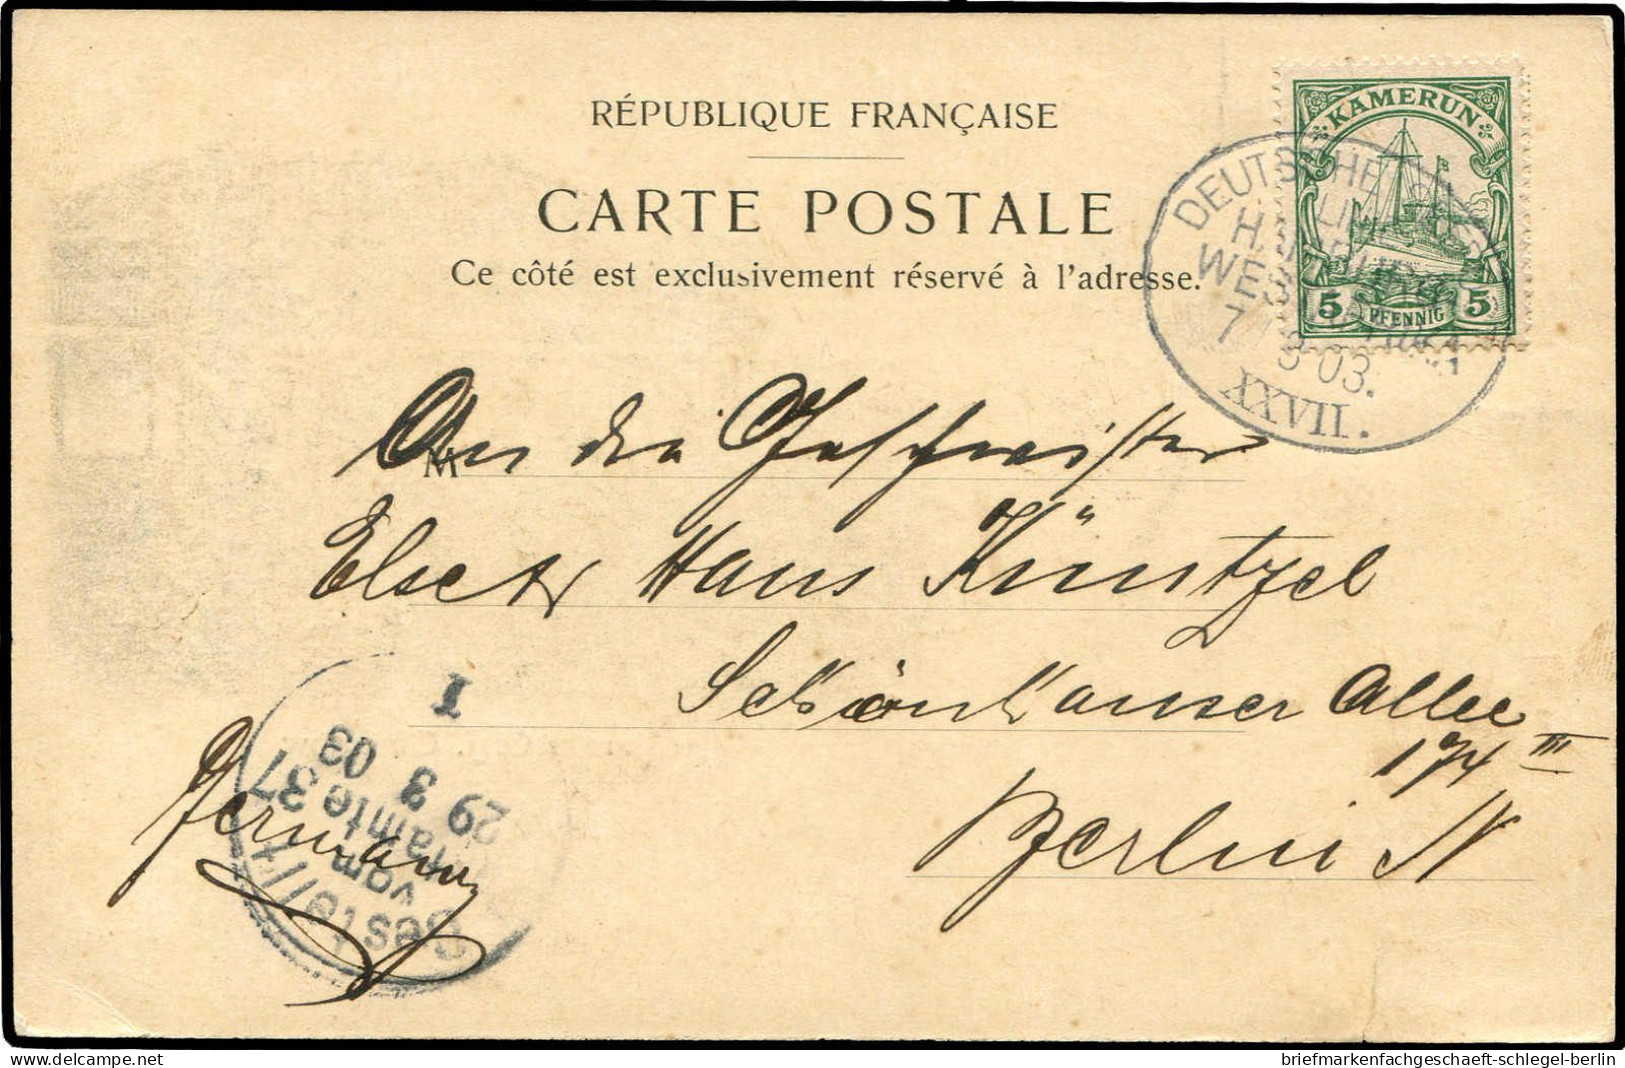 RÉPUBLIQUE FRANÇAISE
CARTE POSTALE
Ce côté est exclusivement réservé à l'adresse.
KAMERUN
5 PFENNIG 5
DEUTSCHE
LINIE
WEST
7 3 03.
XXVII.
M
An die Geschwister
Else u Hans Küntzel
Schönhauser Allee
174 III
Berlin N
Germany
Bestellt
vom
Postamte 37
29 3 03
I
briefmarkenfachgeschaeft-schlegel-berlin